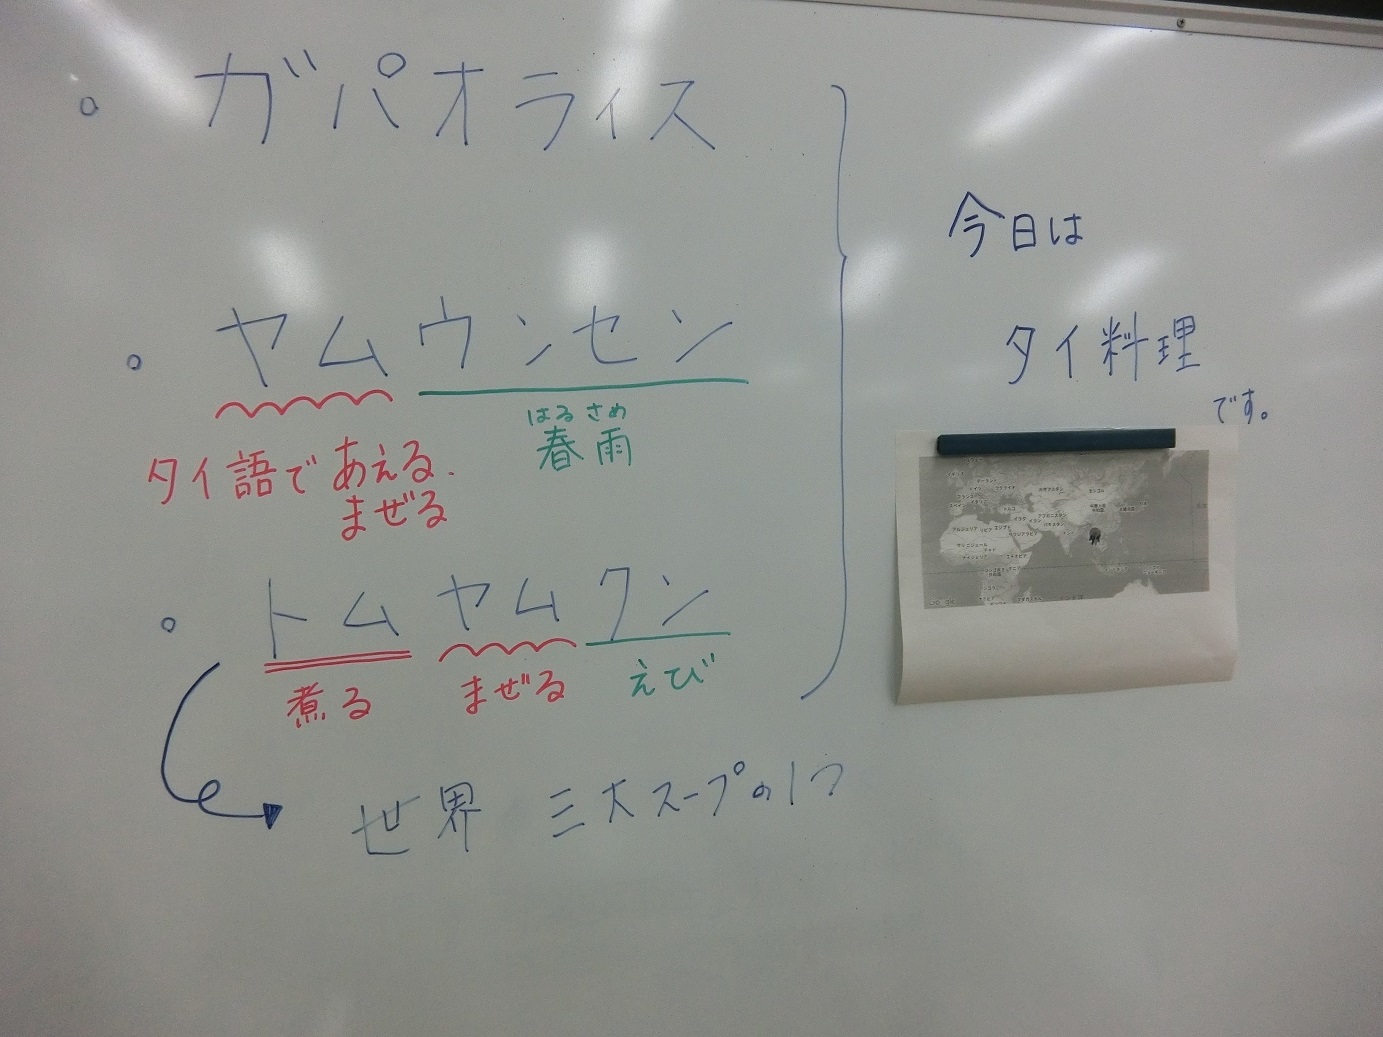 。ガパオライス
。ヤムウンセン
はるさめ
春雨
タイ語であえる、
まぜる
。トムヤムクン
煮る まぜる えび
世界 三大スープの1つ
今日は
タイ料理
です。